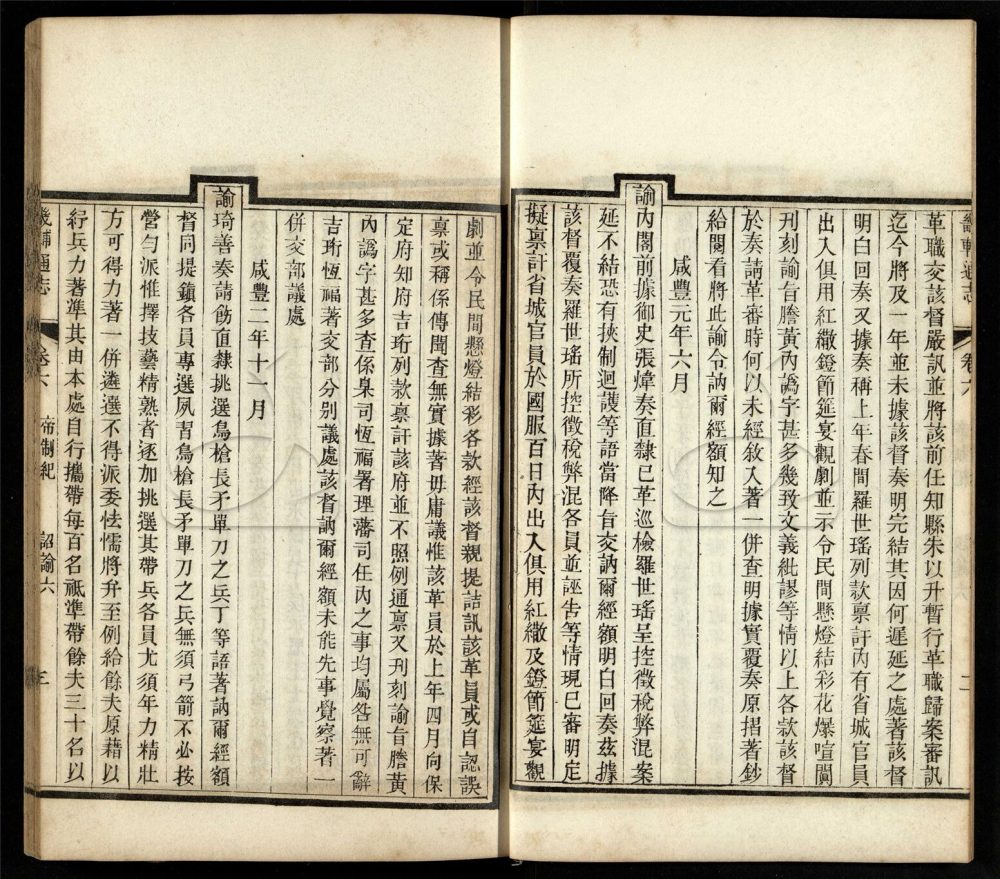 畿輔通志
卷六
二
革職交該督嚴訊並將該前任知縣朱以升暫行革職歸案審訊
迄今將及一年並未據該督奏明完結其因何遲延之處著該督
明白回奏又據奏稱上年春間羅世瑤列款稟訐內有省城官員
出入俱用紅繖鐙節筵宴觀劇並示令民間懸燈結彩花爆喧闐
刊刻諭旨謄黃內譌字甚多幾致文義紕謬等情以上各款該督
於奏請革審時何以未經敘入著一併查明據實覆奏原摺著鈔
給閱看將此諭令訥爾經額知之
咸豐元年六月
諭內閣前據御史張煒奏直隸已革巡檢羅世瑤呈控徵稅弊混案
延不結恐有挾制迴護等語當降旨交訥爾經額明白回奏茲據
該督覆奏羅世瑤所控徵稅弊混各員並誣告等情現已審明定
擬稟訐省城官員於國服百日內出入俱用紅繖及鐙節筵宴觀
劇並令民間懸燈結彩各款經該督親提詰訊該革員或自認誤
稟或稱係傳聞查無實據著毋庸議惟該革員於上年四月向保
定府知府吉珩列款稟訐該府並不照例通稟又刊刻諭旨謄黃
內譌字甚多查係臬司恆福署理藩司任內之事均屬咎無可辭
吉珩恆福著交部分別議處該督訥爾經額未能先事覺察著一
併交部議處
咸豐二年十一月
諭琦善奏請飭直隸挑選鳥槍長矛單刀之兵丁等語著訥爾經額
督同提鎮各員專選夙習鳥槍長矛單刀之兵無須弓箭不必按
營勻派惟擇技藝精熟者逐加挑選其帶兵各員尤須年力精壯
方可得力著一併遴選不得派委怯懦將弁至例給餘夫原藉以
紓兵力著準其由本處自行攜帶每百名祗準帶餘夫三十名以
畿輔通志
卷六
帝制紀 詔諭六
三